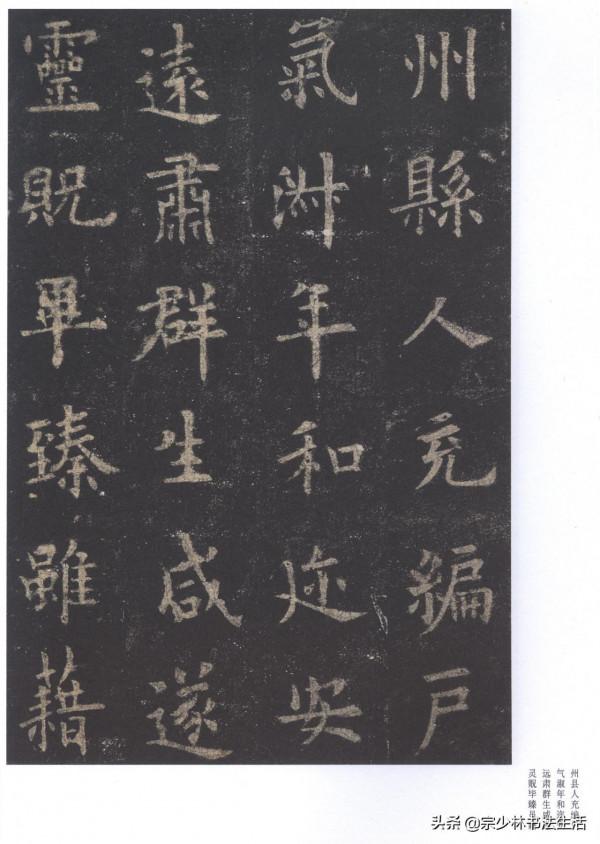 州縣人充編戶
氣淑年和迩安
遠肅群生咸遂
靈貺畢臻雖藉
州县人充编
气淑年和迩
远肃群生咸
灵贶毕臻虽
头条 @宗少林书法生活